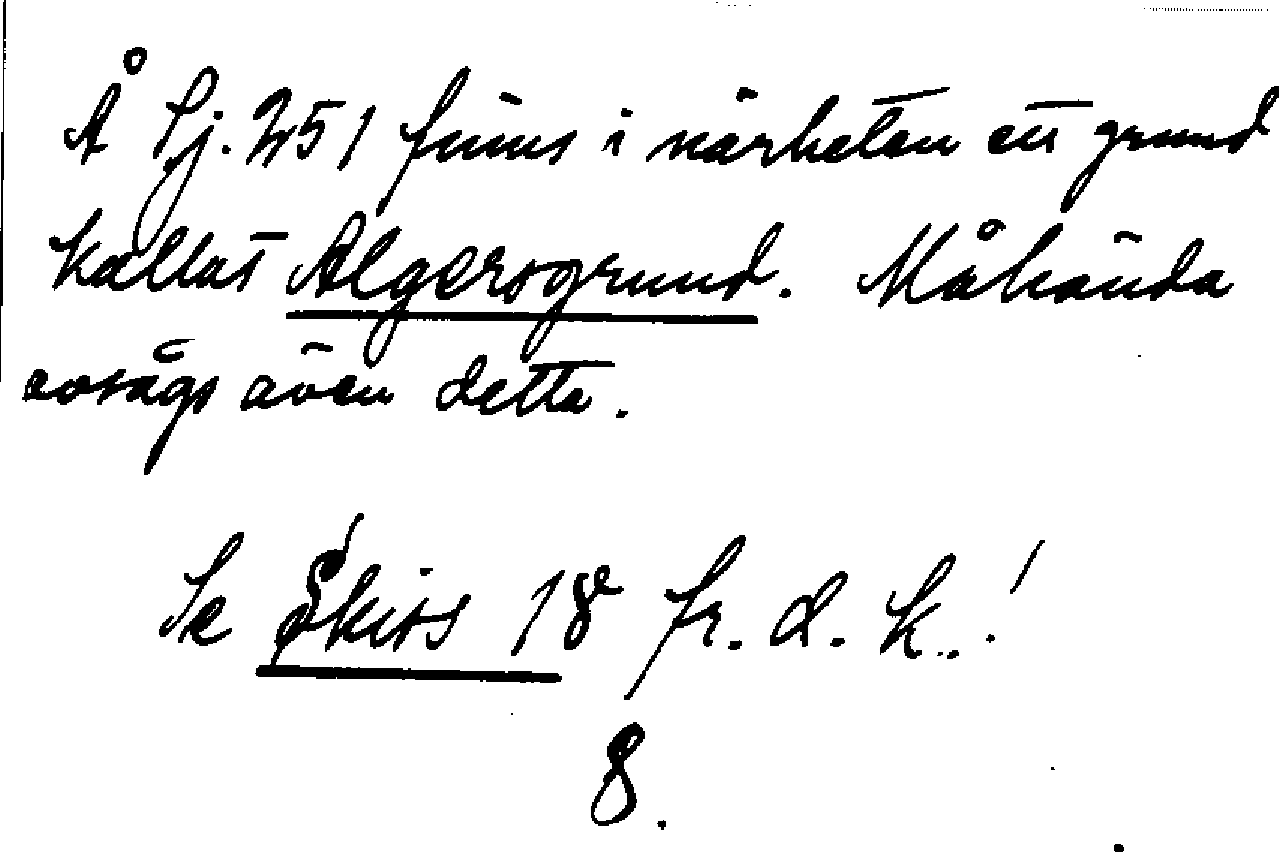 Å Sj. 251 finns i närheten ett grund
kallat Algersgrund. Måhända
avsågs även detta.
Se Skiss 18 fr. d. k..!
8.